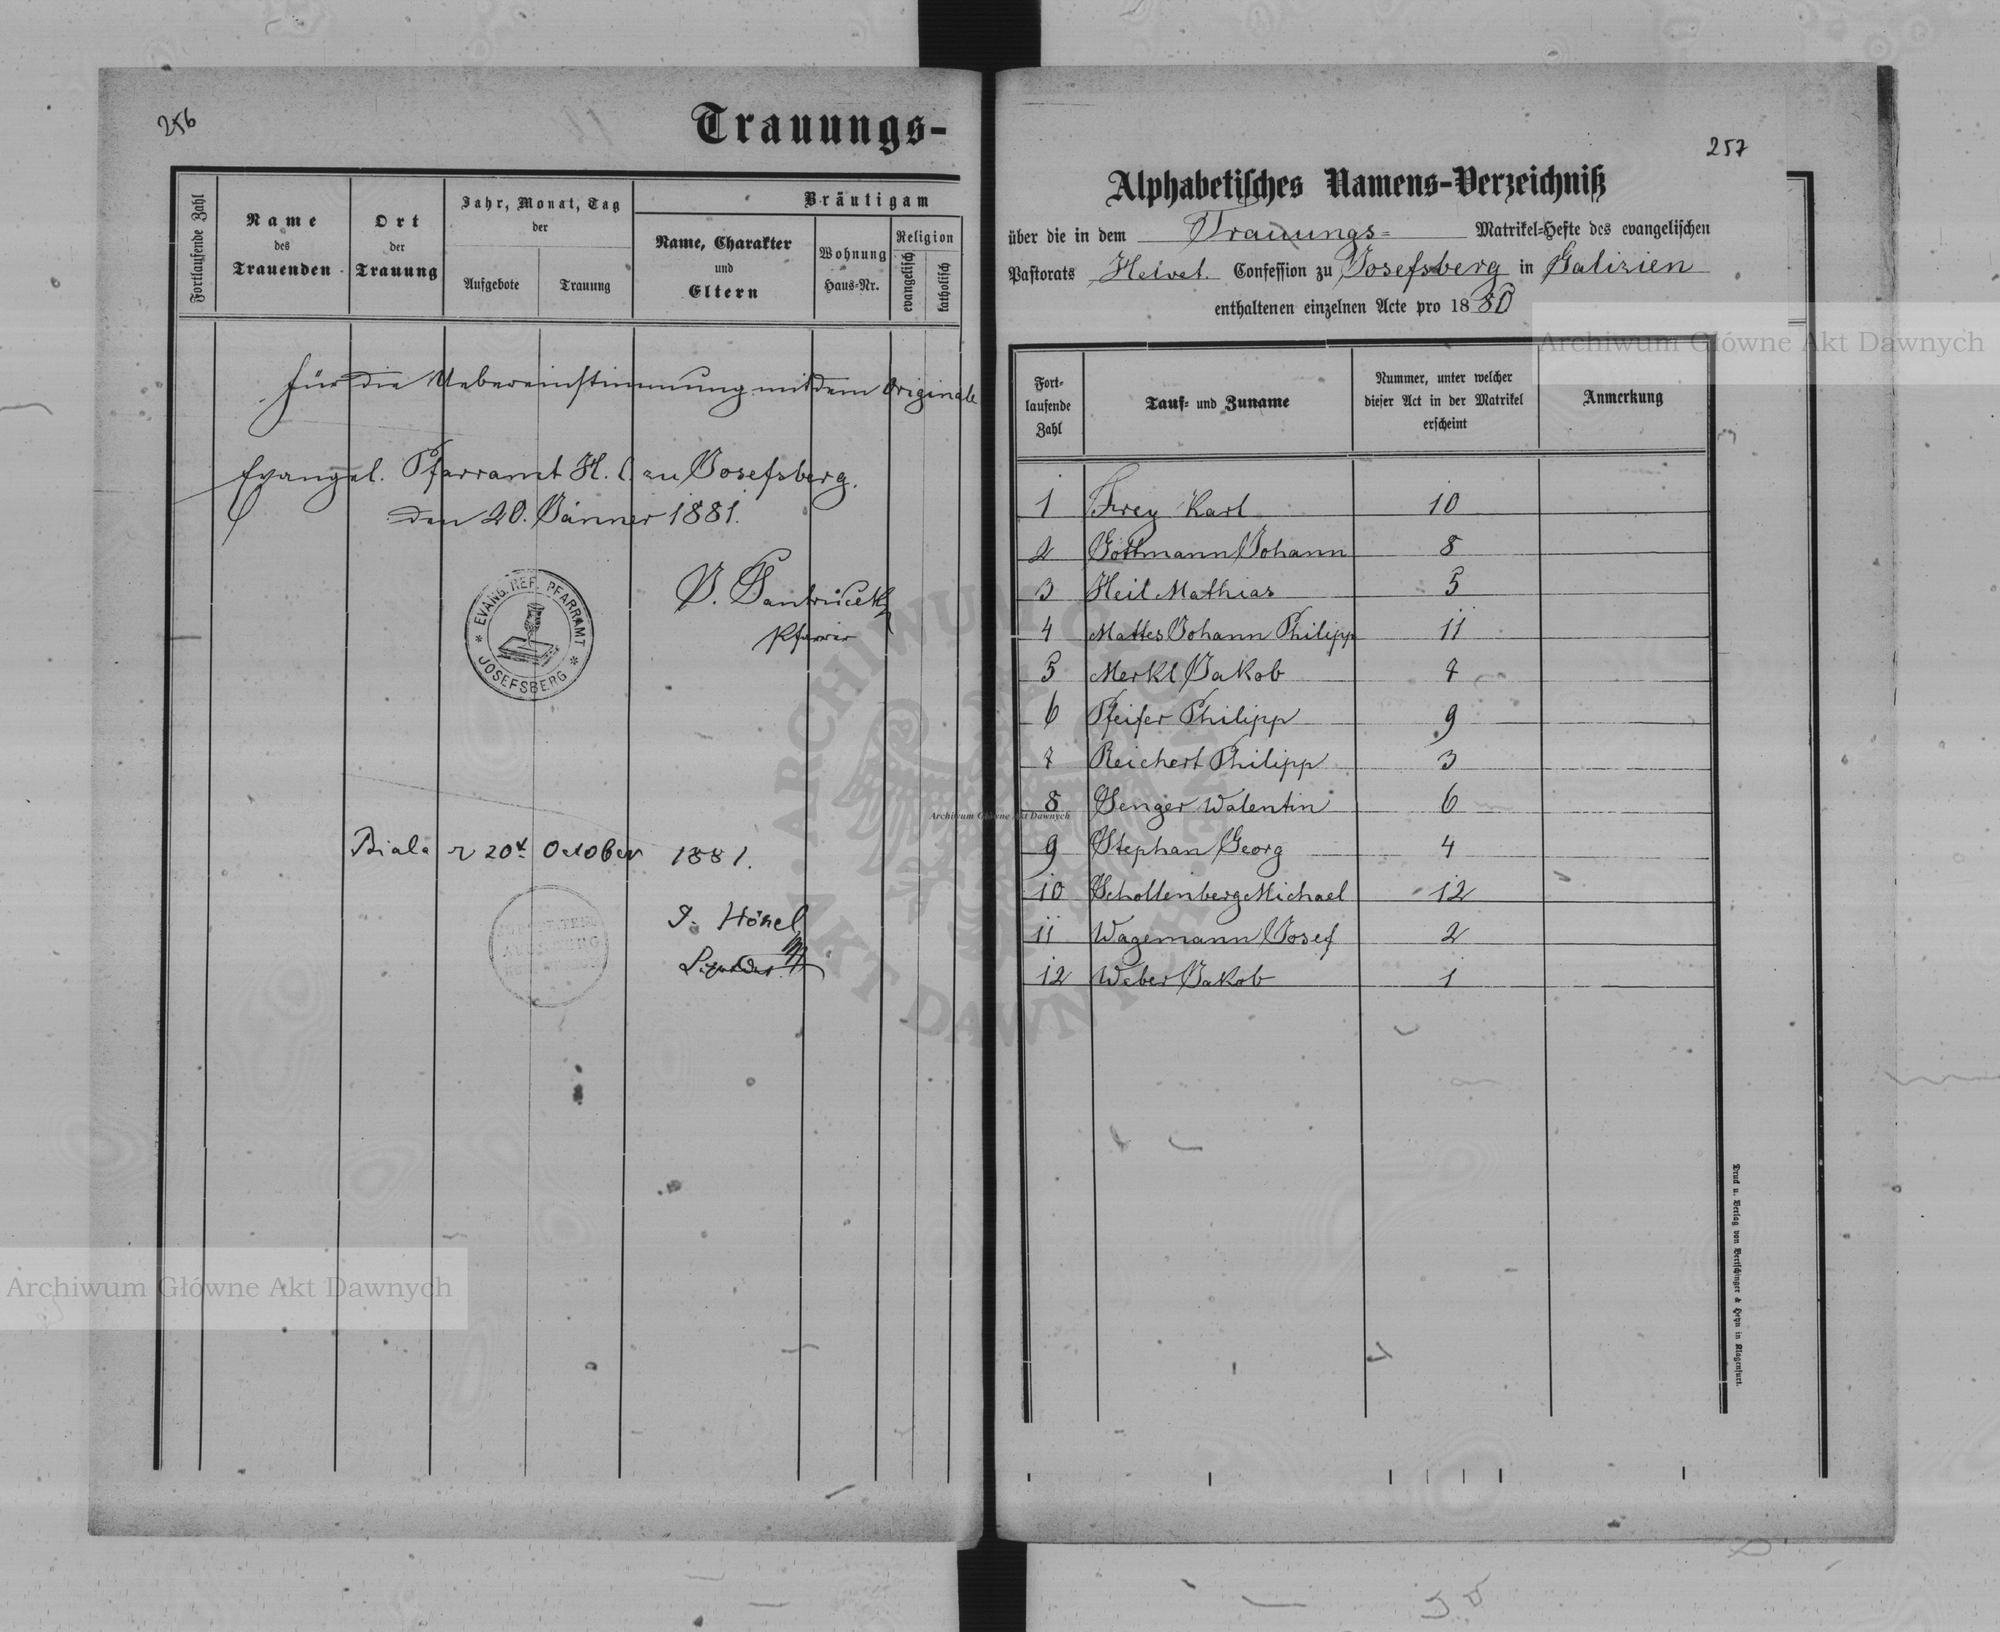 256
Trauungs-
Fortlaufende Zahl
Name
des
Trauenden
Ort
der
Trauung
Jahr, Monat, Tag
der
Aufgebote
Trauung
Bräutigam
Name, Charakter
und
Eltern
Wohnung
Haus-Nr.
Religion
evangelisch
katholisch
für die Uebereinstimmung mit dem Originale
Evangel. Pfarramt H. C. zu Josefsberg.
den 20. Jänner 1881.
EVANG. REF. PFARRAMT
* JOSEFSBERG *
Pfarrer
Biala 20t October 1881.
257
Alphabetisches Namens-Verzeichniß
über die in dem Trauungs- Matrikel-Hefte des evangelischen
Pastorats Helvet. Confession zu Josefsberg in Galizien
enthaltenen einzelnen Acte pro 1880
Fort-
laufende
Zahl
Tauf- und Zuname
Nummer, unter welcher
dieser Act in der Matrikel
erscheint
Anmerkung
1 Frey Karl 10
2 Gottmann Johann 8
3 Heil Mathias 5
4 Mattes Johann Philipp 11
5 Merkl Jakob 7
6 Pfeifer Philipp 9
7 Reichert Philipp 3
8 Senger Walentin 6
9 Stephan Georg 4
10 Schollenberg Michael 12
11 Wagemann Josef 2
12 Weber Jakob 1
Druck u. Verlag von Bertschinger & Heyn in Klagenfurt.
Archiwum Główne Akt Dawnych
Archiwum Główne Akt Dawnych
Archiwum Główne Akt Dawnych
ARCHIWUM GŁÓWNE AKT DAWNYCH